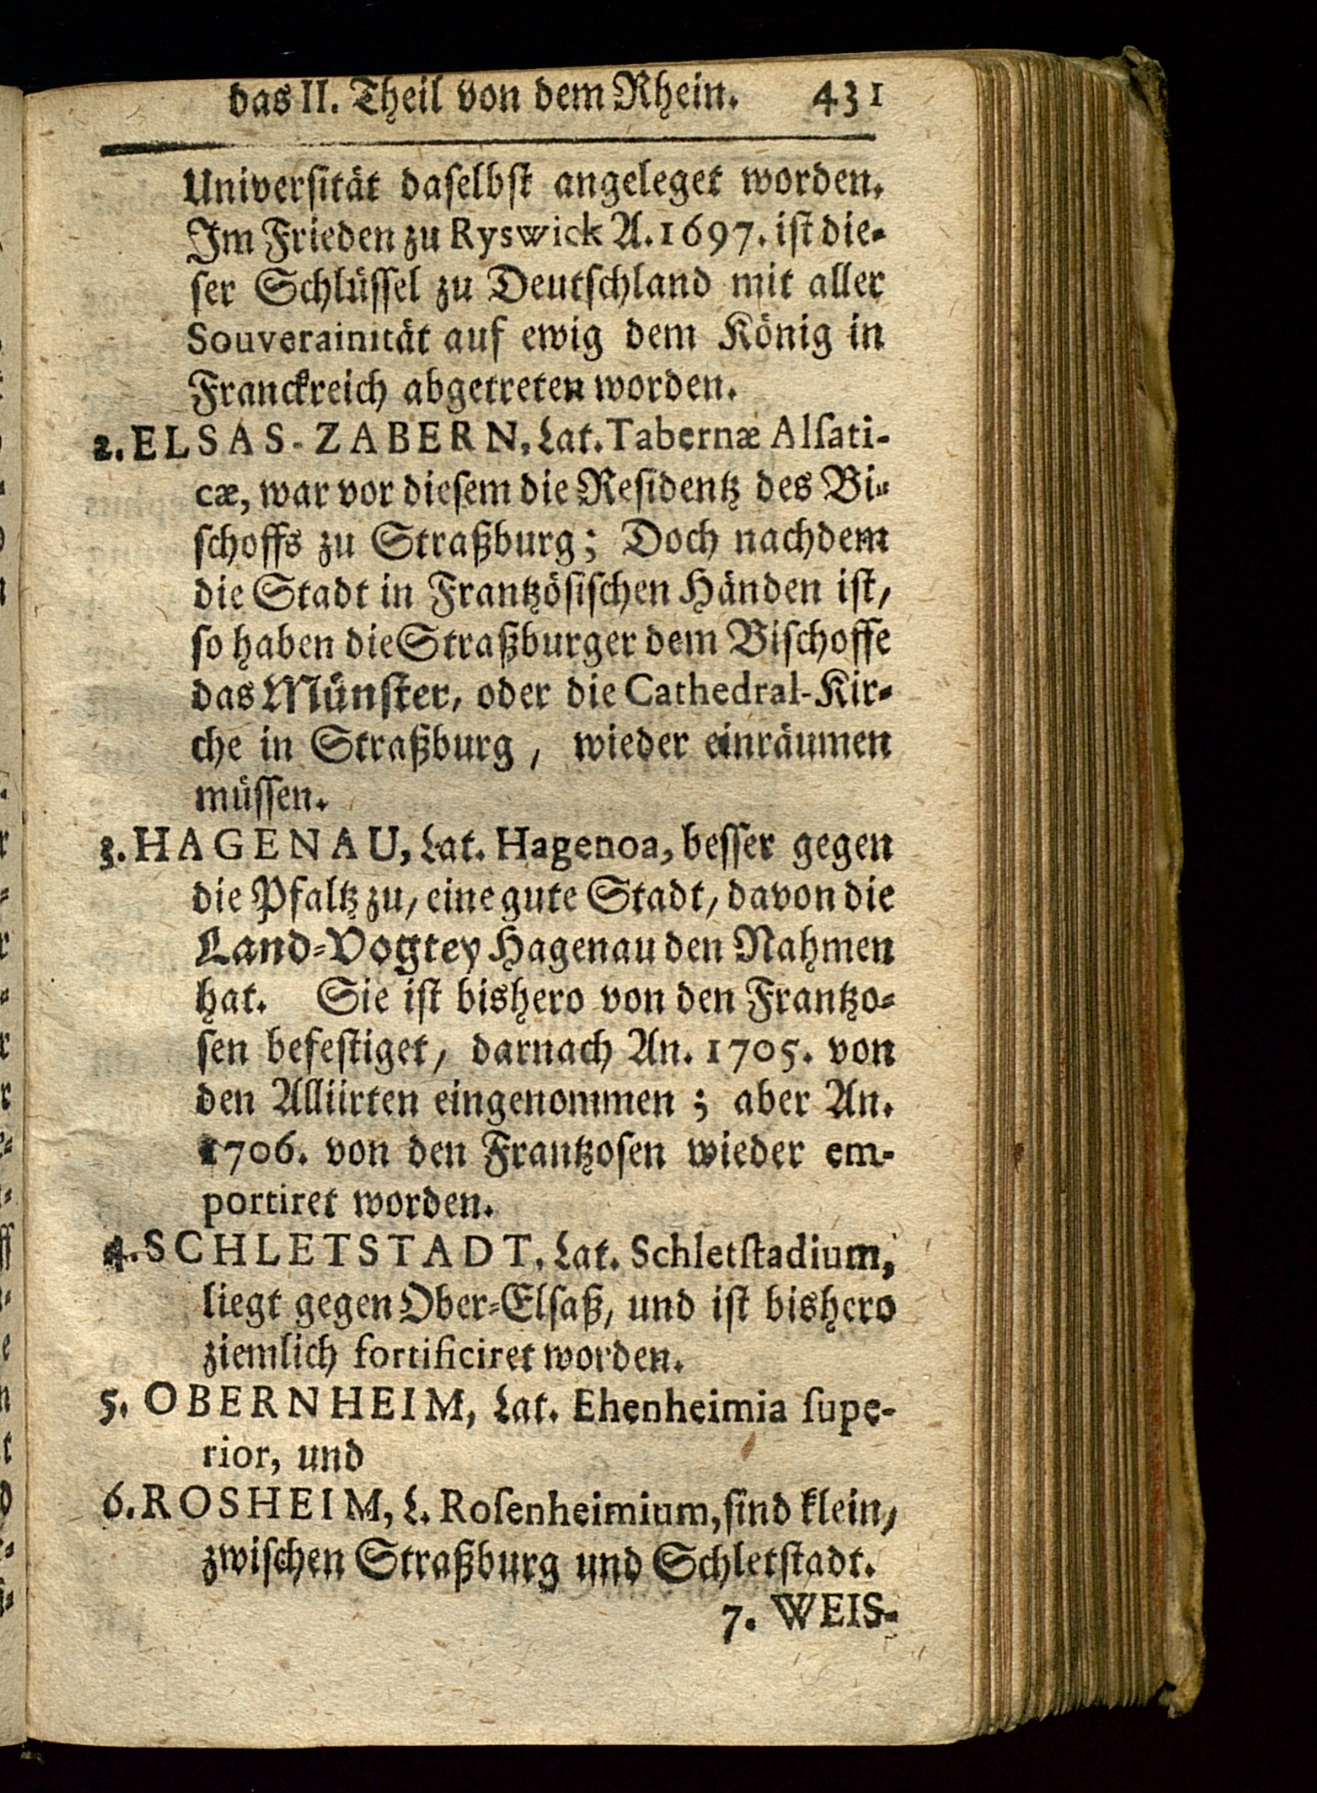 das II. Theil von dem Rhein. 431
Universität daselbst angeleget worden.
Im Frieden zu Ryswick A. 1697. ist die-
ser Schlüssel zu Deutschland mit aller
Souverainität auf ewig dem König in
Franckreich abgetreten worden.
2. ELSAS-ZABERN, Lat. Tabernæ Alsati-
cæ, war vor diesem die Residentz des Bi-
schoffs zu Straßburg; Doch nachdem
die Stadt in Frantzösischen Händen ist,
so haben die Straßburger dem Bischoffe
das Münster, oder die Cathedral-Kir-
che in Straßburg, wieder einräumen
müssen.
3. HAGENAU, Lat. Hagenoa, besser gegen
die Pfaltz zu, eine gute Stadt, davon die
Land-Vogtey Hagenau den Nahmen
hat. Sie ist bishero von den Frantzo-
sen befestiget, darnach An. 1705. von
den Alliirten eingenommen; aber An.
1706. von den Frantzosen wieder em-
portiret worden.
4. SCHLETSTADT, Lat. Schletstadium,
liegt gegen Ober-Elsaß, und ist bishero
ziemlich fortificiret worden.
5. OBERNHEIM, Lat. Ehenheimia supe-
rior, und
6. ROSHEIM, L. Rosenheimium, sind klein,
zwischen Straßburg und Schletstadt.
7. WEIS-